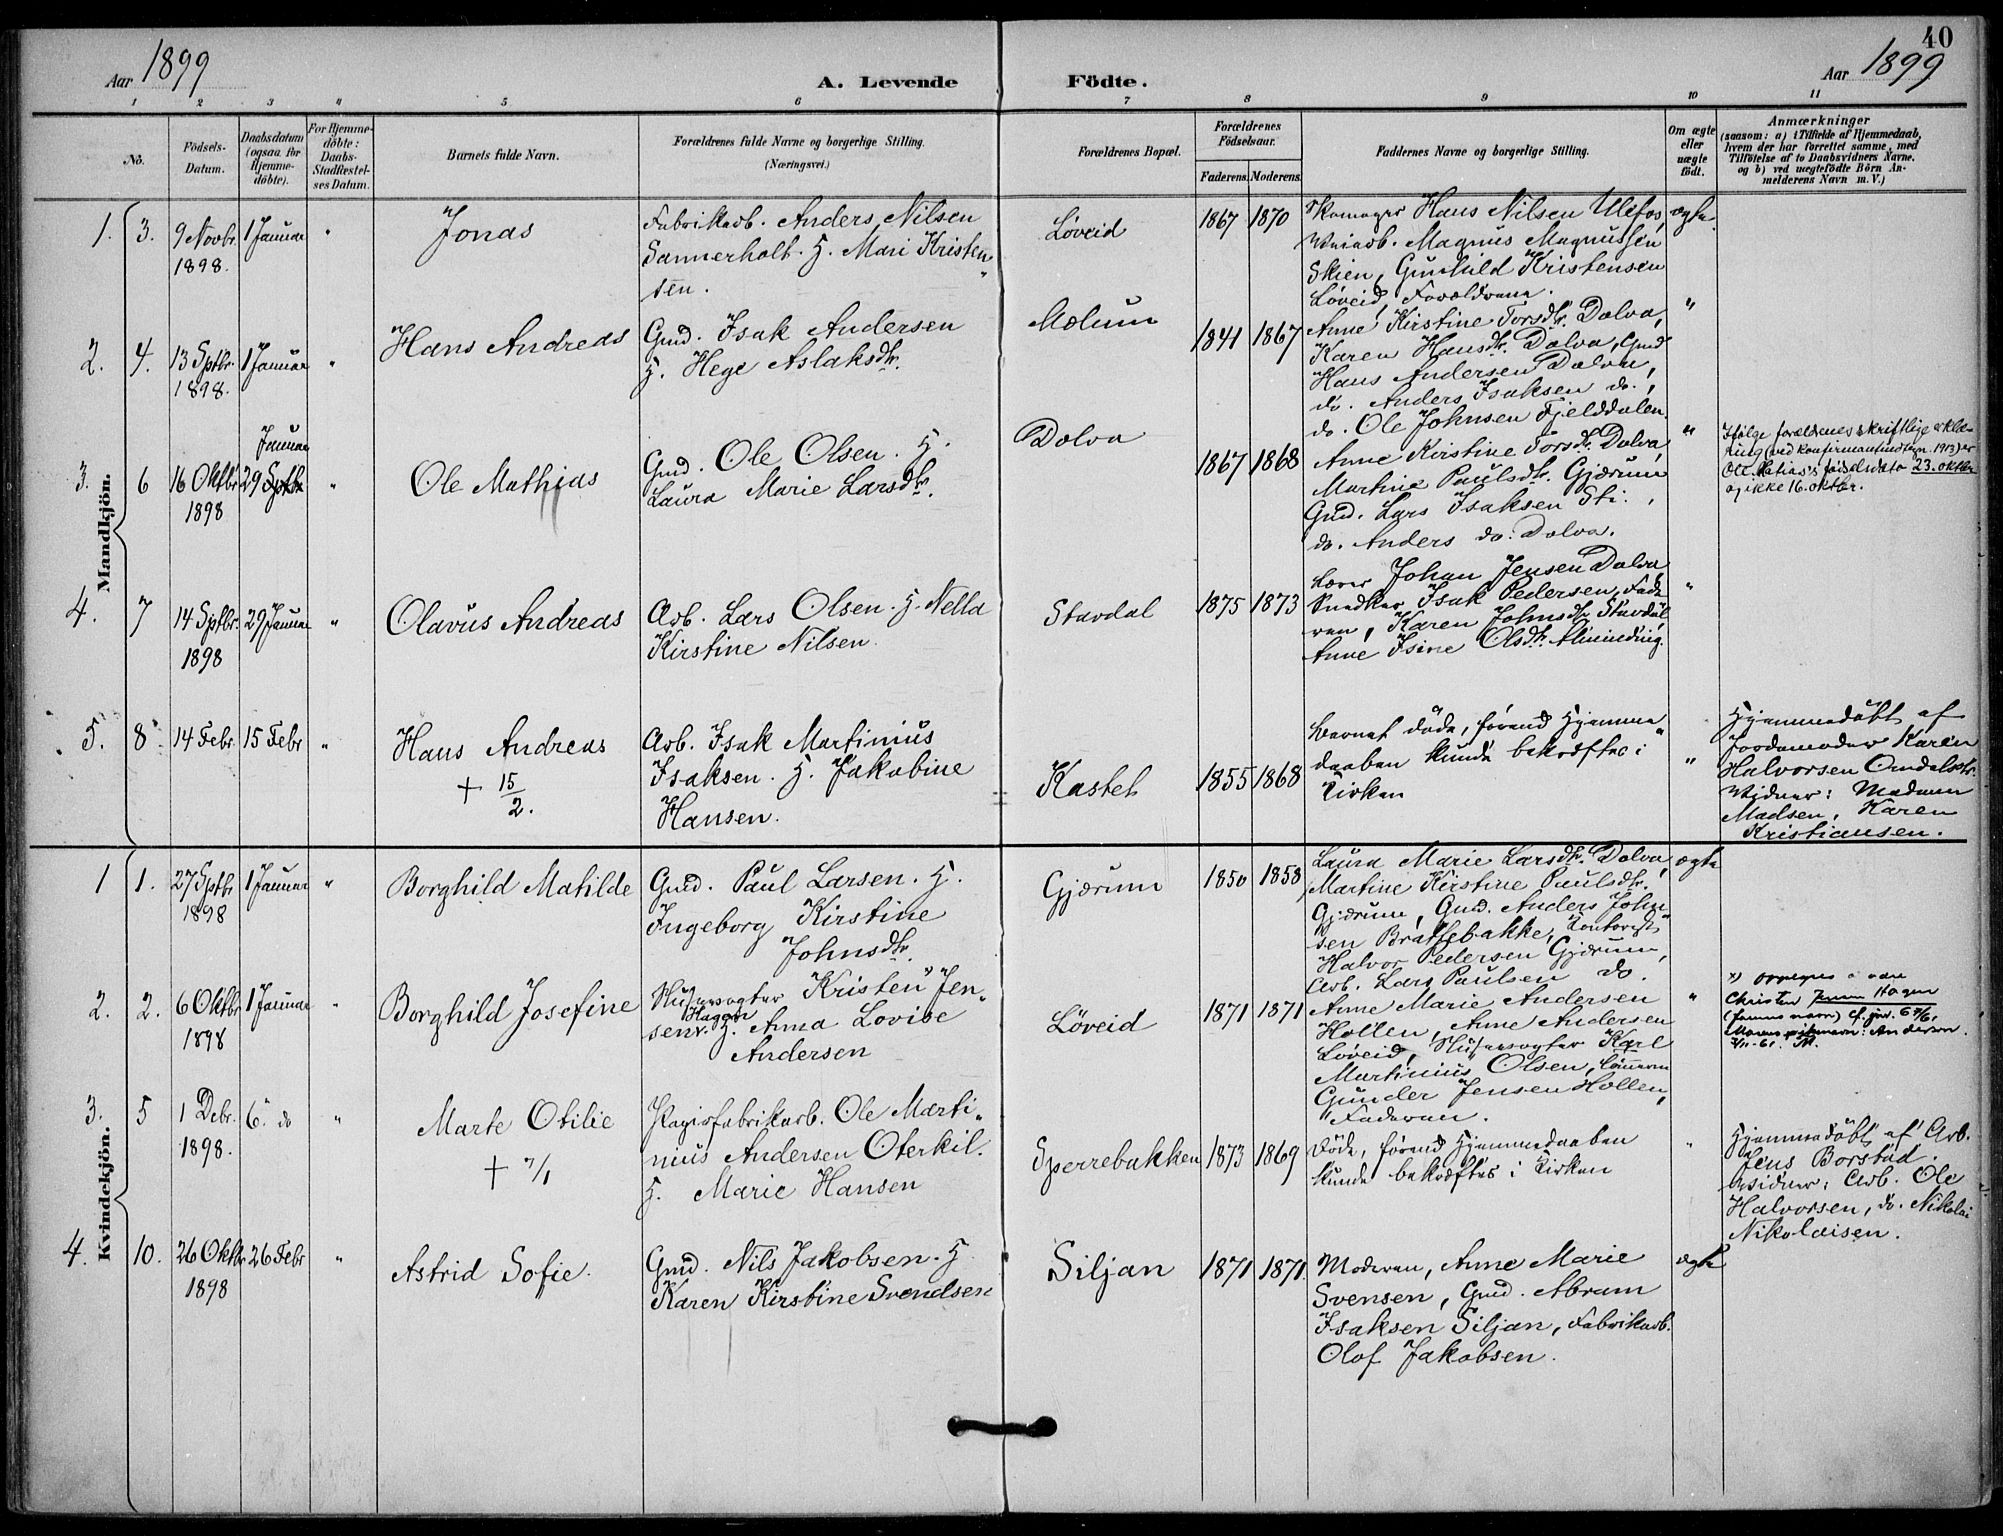 40
Aar 1899
A. Levende
Födte.
Aar 1899
1 2 3 4 5 6 7 8 9 10 11
No.
Födsels-Datum.
Daabsdatum (ogsaa for Hjemme-döbte).
For Hjemme-döbte: Daabs-Stadfæstel-ses Datum.
Barnets fulde Navn.
Forældrenes fulde Navne og borgerlige Stilling.
(Næringsvei.)
Forældrenes Bopæl.
Forældrenes Födselsaar.
Faderens. Moderens.
Faddernes Navne og borgerlige Stilling.
Om ægte eller uægte födt.
Anmærkninger
(saasom: a) i Tilfælde af Hjemmedaab,
hvem der har forrettet samme, med
Tilföielse af to Daabsvidners Navne.
og b) ved uægtefödte Börn An-
melderens Navn m. V.)
Mandkjön.
1. 3. 9 Novbr. 1898. 1 Januar "
Jonas
Fabrikarb. Anders Nilsen
Sannerholt. H. Mari Kristen-
sen.
Løveid
1867 1870
Skomager Hans Nilsen Ulefos,
Veiarb. Magnus Magnussen
Skien, Gunhild Kristensen
Løveid, Forældrene.
ægte.
2. 4. 13 Sptbr. 1898. 1 Januar "
Hans Andreas
Gmd. Isak Andersen
H. Hege Aslaksdtr.
Mælum
1841 1867
Anne Kirstine Torsdtr. Dolva,
Karen Hansdtr. Dolva, Gmd
Hans Andersen Dolva,
do. Anders Isaksen do.,
do. Ole Johnsen Fjelddalen.
"
3. 6 16 Oktbr 1898 Januar
29 Sptbr "
Ole Mathias
Gmd. Ole Olsen. H.
Laura Marie Larsdtr.
Dolva
1867 1868
Anne Kirstine Torsdtr. Dolva,
Martine Paulsdtr. Gjærum
Gmd. Lars Isaksen Sti.,
do. Anders do. Dolva.
"
Ifølge forældrenes skriftlige erklæ-
ring ved konfirmantindtegn. 1913 er
Ole Matias's fødselsdato 23. oktbr
og ikke 16. oktbr.
4. 7 14 Sptbr. 1898 29 Januar "
Olavus Andreas
Arb. Lars Olsen. H. Nella
Kirstine Nilsen.
Stavdal
1875 1873
Lærer Johan Jensen Dolva,
Snedker Isak Pedersen, Fade-
ren, Karen Johnsdtr. Stavdal,
Anne Isine Olsdtr. Alminding.
"
5. 8. 14 Febr. 15 Febr "
Hans Andreas
+ 15/2.
Arb. Isak Martinius
Isaksen. H. Jakobine
Hansen.
Kastet
1855 1868
Barnet døde, førend Hjemme-
daaben kunde bekræftes i
Kirken
"
Hjemmedøbt af
Jordemoder Karen
Halvorsen
Vidner: Madam
Madsen, Karen
Kristiansen.
Kvindekjön.
1 1. 27 Sptbr. 1898 1 Januar "
Borghild Matilde
Gmd. Paul Larsen. H.
Ingeborg Kirstine
Johnsdtr.
Gjærum
1850 1858
Laura Marie Larsdtr. Dolva,
Martine Kirstine Paulsdtr.
Gjærum, Gmd. Anders John-
sen Brattebakke, Kontorist
Halvor Pedersen Gjærum,
Arb. Lars Paulsen do.
ægte
2. 2. 6 Oktbr. 1898 1 Januar "
Borghild Josefine
Slusevogter Kristen Jen-
Hagen
sen. H. Anna Lovise
Andersen
Løveid
1871 1871
Anne Marie Andersen
Hollen, Anne Andersen
Løveid, Slusevogter Karl
Martinius Olsen,
Gunder Jensen Hollen,
Faderen.
"
x) oppgis å være
Christen Jensen Hagen
3. 5 1 Debr. 1898. 6. do "
Marte Otilie
+ 7/1
Papirfabrikarb. Ole Marti-
nius Andersen Oterkil.
H. Marie Hansen
Sperrebakken
1873 1869
Døde, førend Hjemmedaaben
kunde bekræftes i Kirken
"
Hjemmedøbt af Arb.
Jens Borstad.
Vidner: Arb. Ole
Halvorsen, do. Nikolai
Nikolaisen.
4. 10. 26 Oktbr 1898 26 Febr "
Astrid Sofie.
Gmd. Nils Jakobsen. H
Karen Kirstine Svendsen
Siljan
1871 1871.
Moderen, Anne Marie
Svensen, Gmd. Abram
Isaksen Siljan, Fabrikarb.
Olof Jakobsen.
ægte